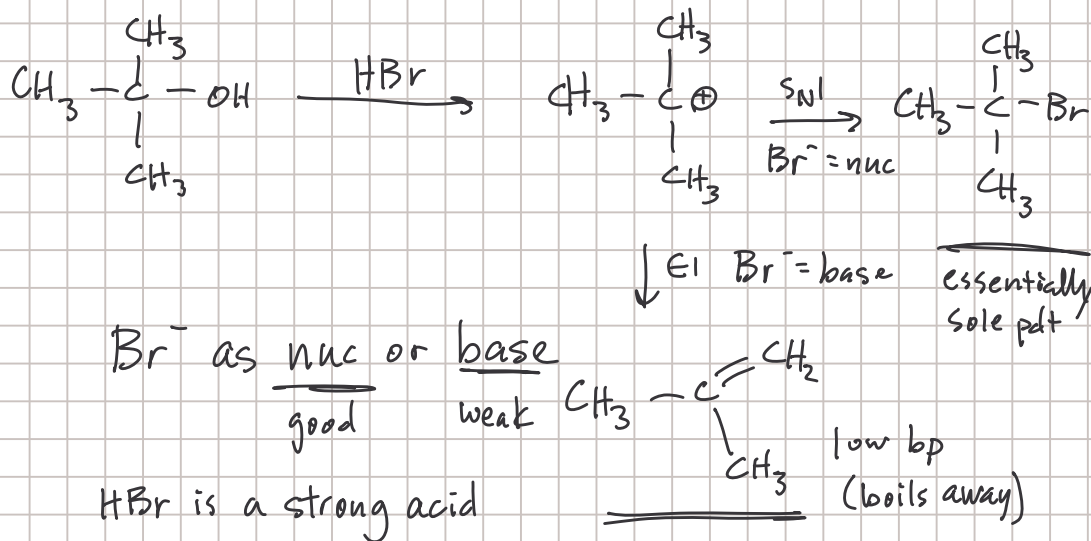 CH3 CH3 CH3
CH3 – C – OH HBr CH3 – C ⊕ SN1 CH3 – C – Br
Br⁻ = nuc
CH3 CH3 CH3
E1 Br⁻ = base essentially
sole pdt
Br⁻ as nuc or base
good weak
CH3 – C = CH2
CH3
low bp
(boils away)
HBr is a strong acid